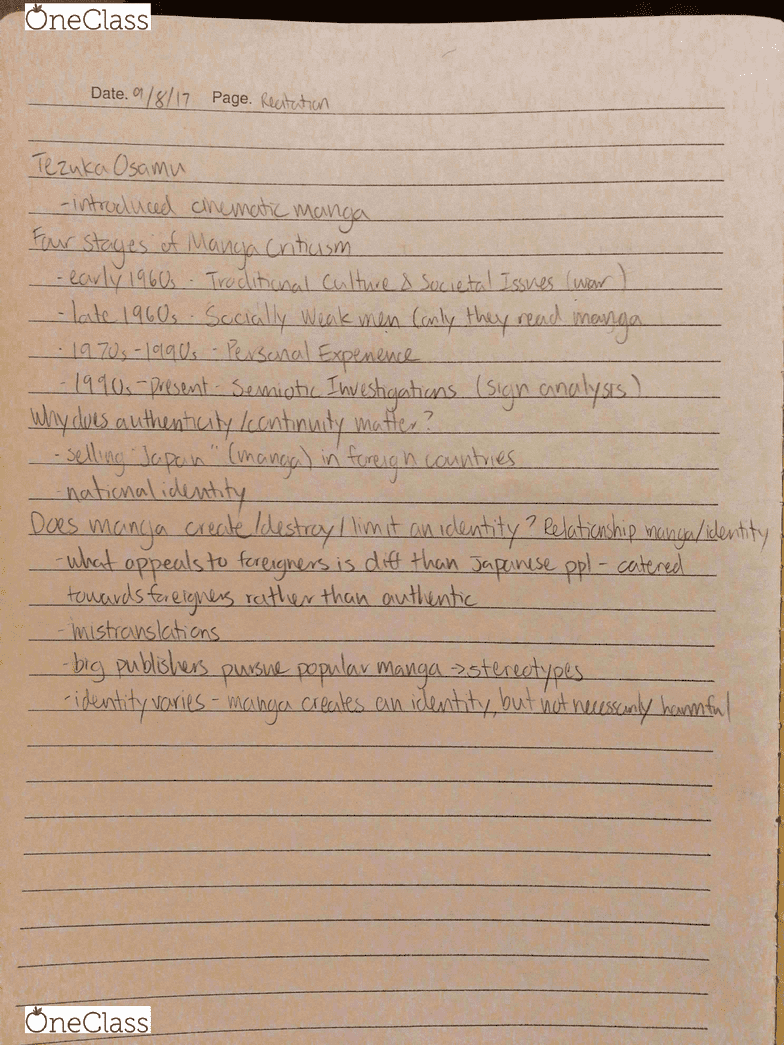 OneClass
Date. 9/8/17 Page. Recitation
Tezuka Osamu
-introduced cinematic manga
Four Stages of Manga Criticism
-early 1960s - Traditional Culture & Societal Issues (war)
-late 1960s - Socially Weak men (only they read manga
-1970s-1990s - Personal Experience
-1990s-present - Semiotic Investigations (sign analysis)
Why does authenticity/continuity matter?
-selling "Japan" (manga) in foreign countries
-national identity
Does manga create/destroy/limit an identity? Relationship manga/identity
-what appeals to foreigners is diff than Japanese ppl - catered
towards foreigners rather than authentic
-mistranslations
-big publishers pursue popular manga -> stereotypes
-identity varies - manga creates an identity, but not necessarily harmful
OneClass